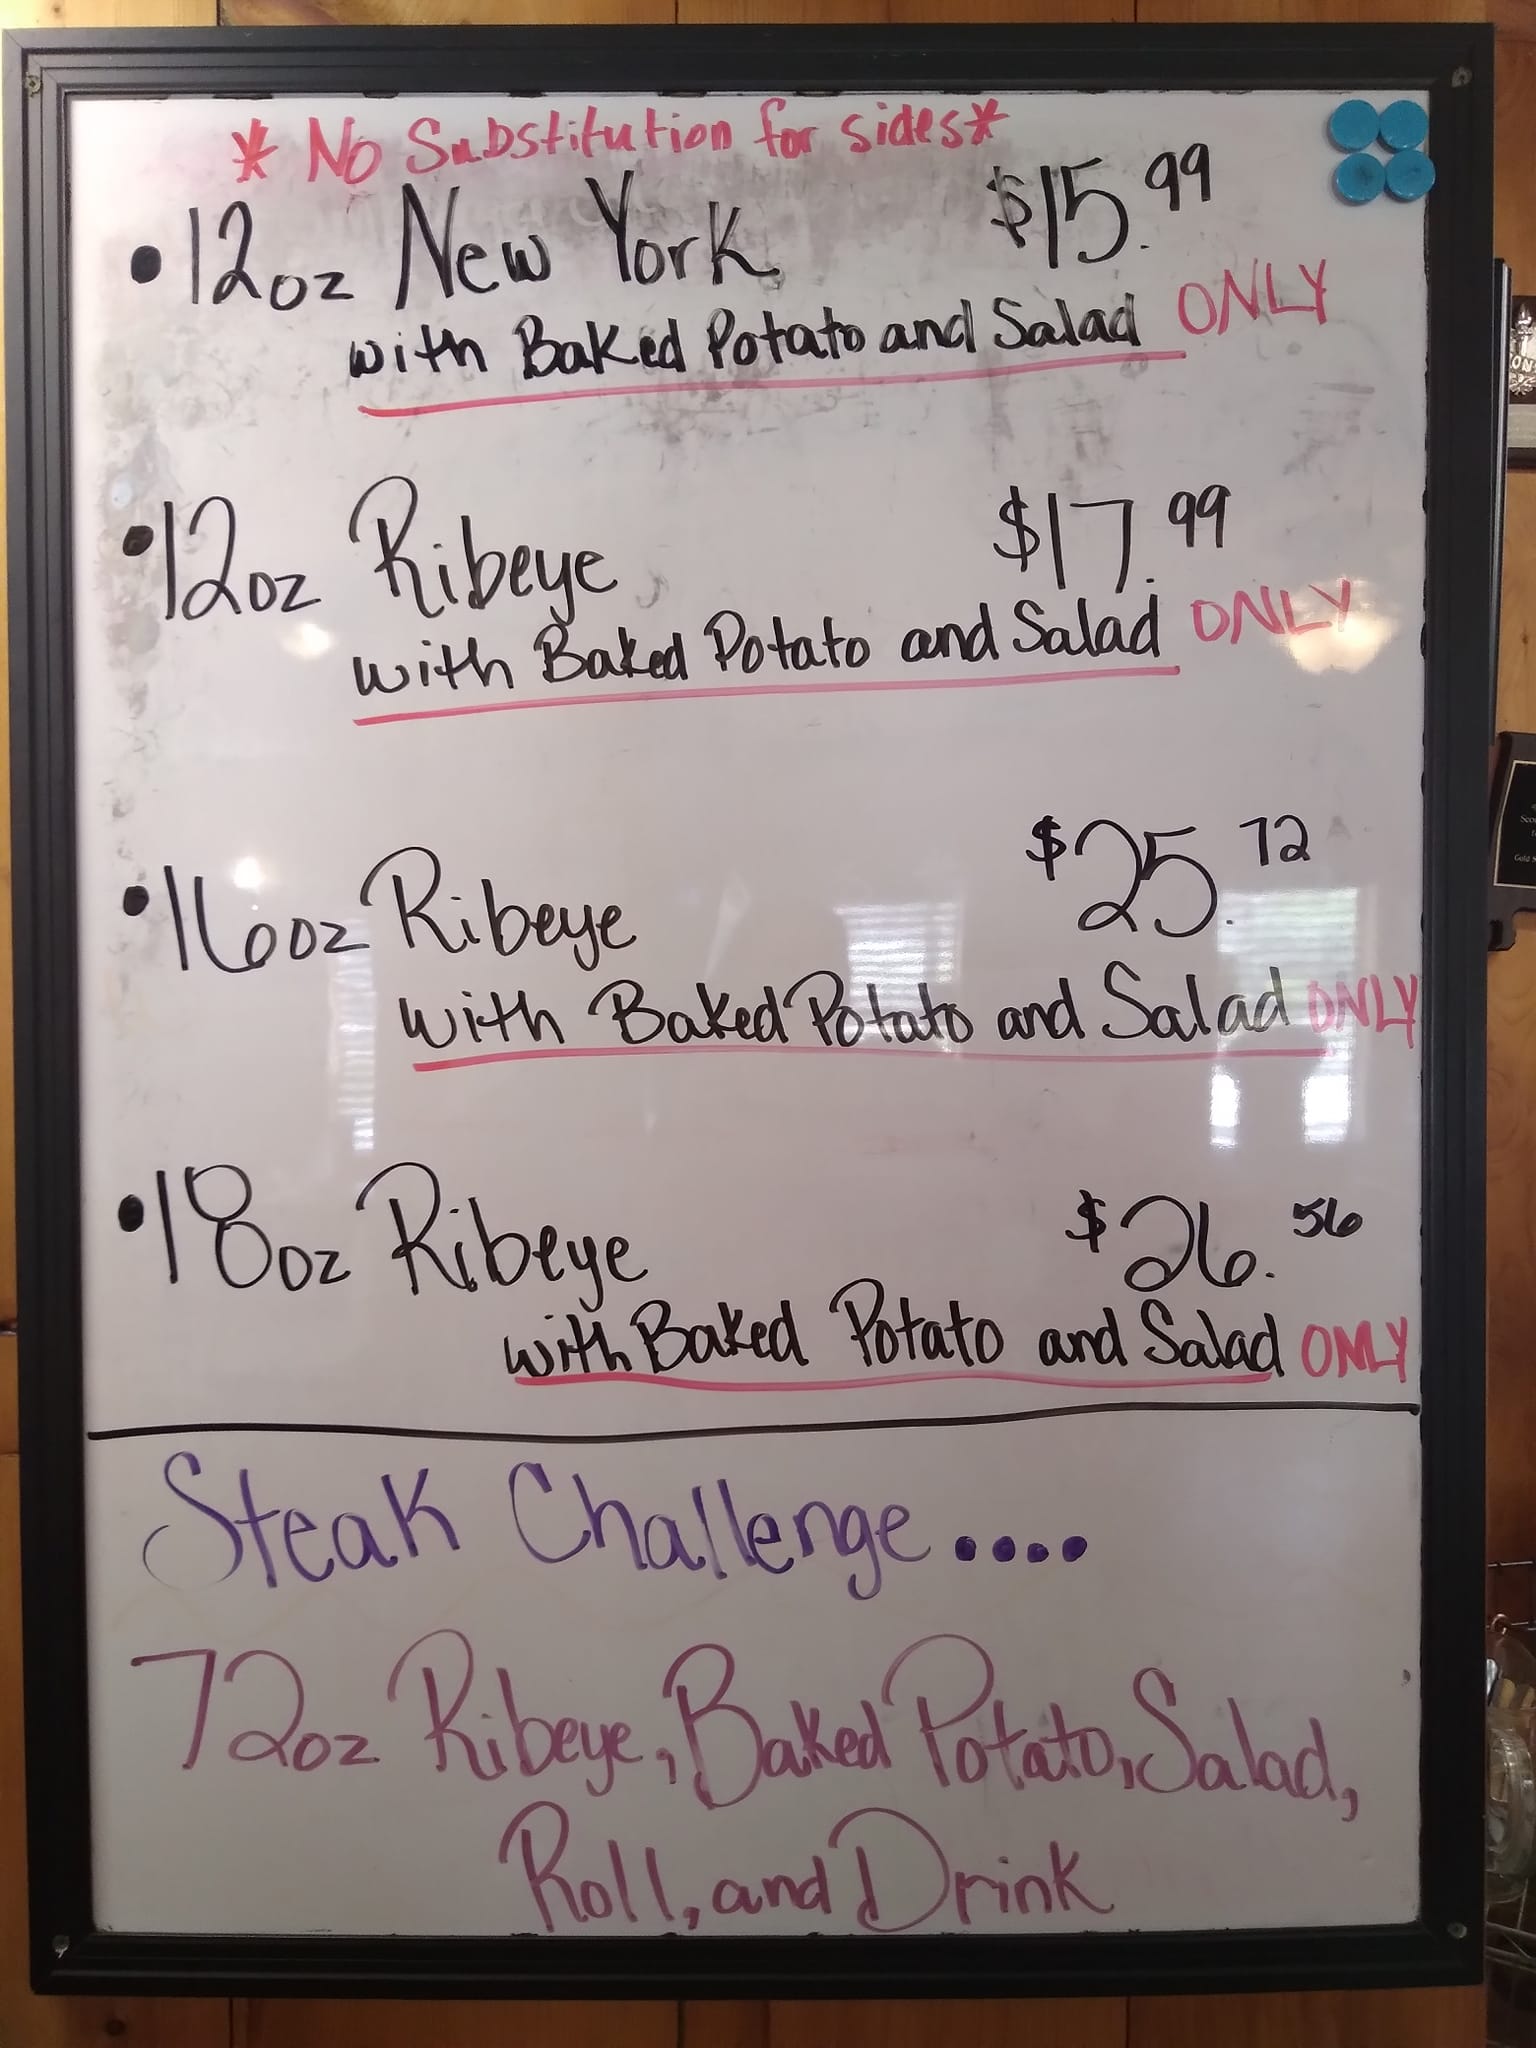 * No Substitution for sides*
• 12oz New York $15.99
with Baked Potato and Salad ONLY
• 12oz Ribeye $17.99
with Baked Potato and Salad ONLY
• 16oz Ribeye $25.72
with Baked Potato and Salad ONLY
• 18oz Ribeye $26.56
with Baked Potato and Salad ONLY
Steak Challenge....
72oz Ribeye, Baked Potato, Salad,
Roll, and Drink